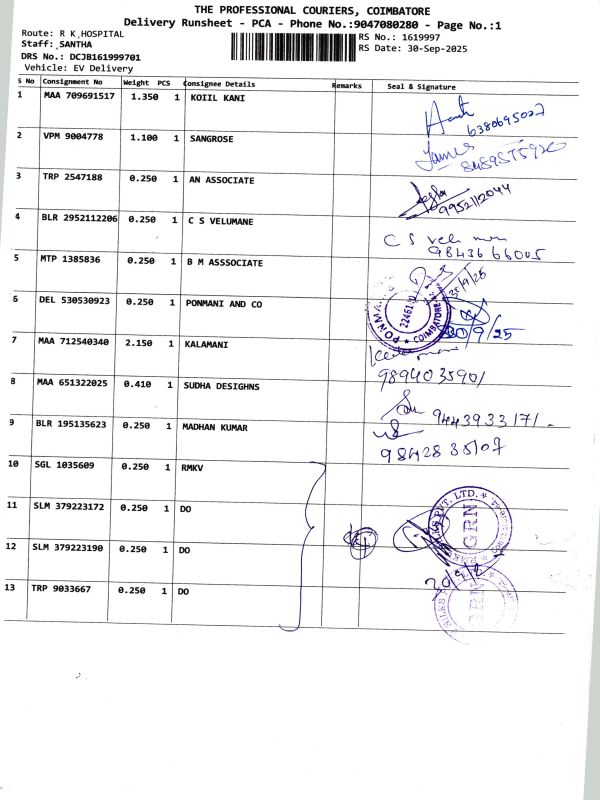 THE PROFESSIONAL COURIERS, COIMBATORE
Delivery Runsheet - PCA - Phone No.:9047080280 - Page No.:1
Route: R K HOSPITAL
RS No.: 1619997
Staff: SANTHA
RS Date: 30-Sep-2025
DRS No.: DCJB161999701
Vehicle: EV Delivery
S No Consignment No Weight PCS Consignee Details Remarks Seal & Signature
1 MAA 709691517 1.350 1 KOIIL KANI
6380695027
2 VPM 9004778 1.100 1 SANGROSE
James
3 TRP 2547188 0.250 1 AN ASSOCIATE
9952112044
4 BLR 2952112206 0.250 1 C S VELUMANE
C S
9843666005
5 MTP 1385836 0.250 1 B M ASSSOCIATE
30/9/25
6 DEL 530530923 0.250 1 PONMANI AND CO
COIMBATORE
30/9/25
7 MAA 712540340 2.150 1 KALAMANI
9894035901
8 MAA 651322025 0.410 1 SUDHA DESIGHNS
9443933171
9 BLR 195135623 0.250 1 MADHAN KUMAR
9842835107
10 SGL 1035609 0.250 1 RMKV
11 SLM 379223172 0.250 1 DO
GRN
12 SLM 379223190 0.250 1 DO
4
13 TRP 9033667 0.250 1 DO
GRN